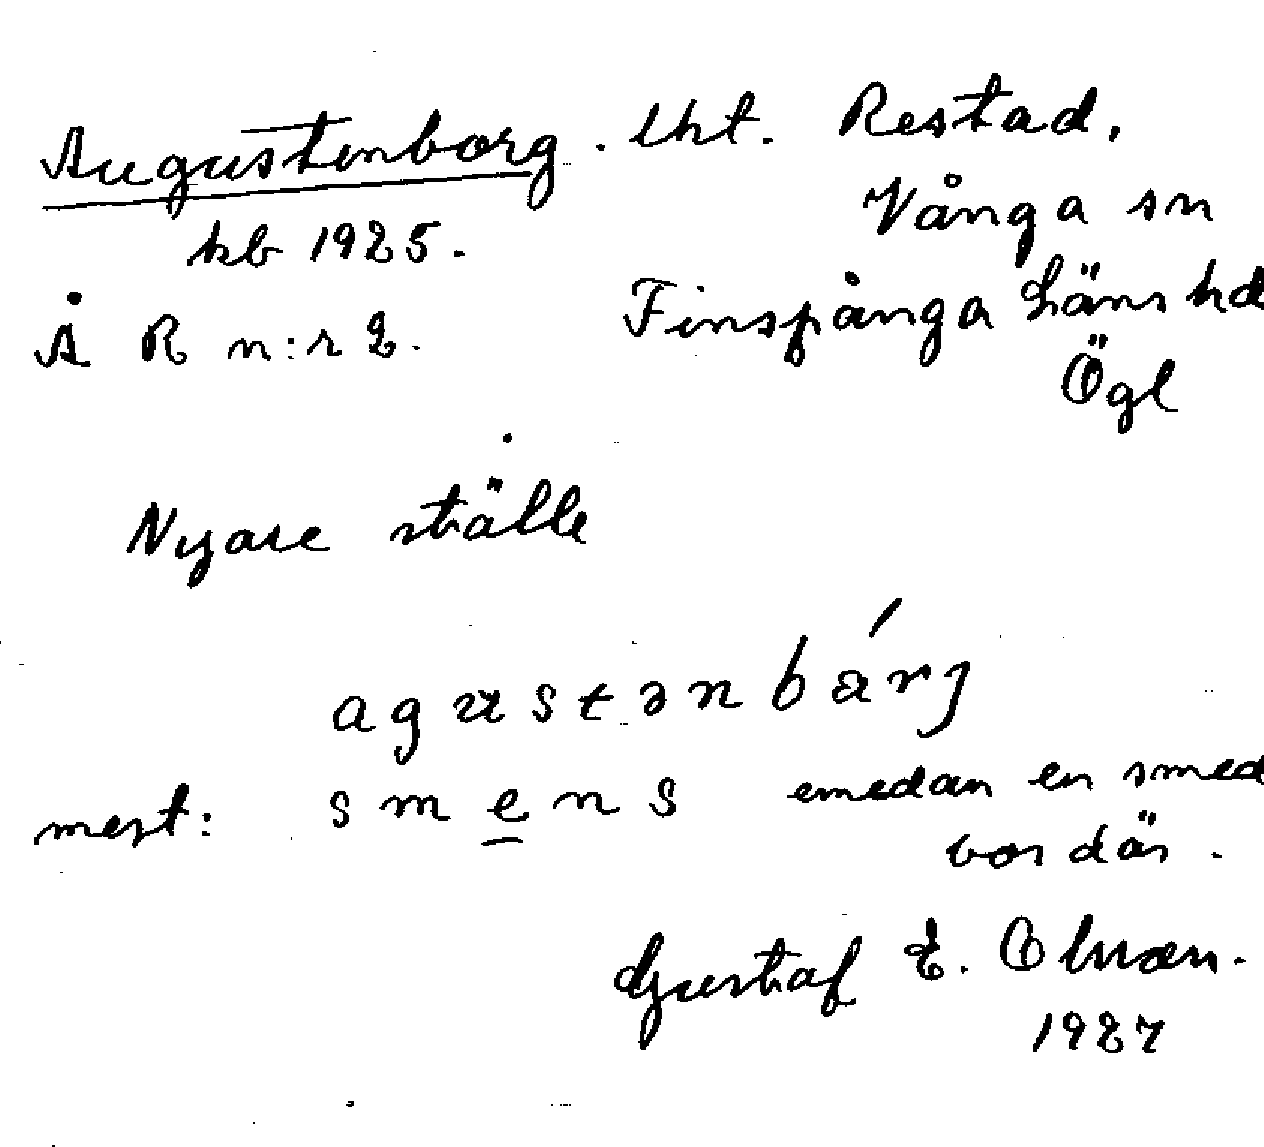 Augustenborg. lht. Restad,
kb 1925. Vånga sn
Å R n:r 2. Finspånga Läns hd
Ögl
Nyare ställe
agustənbárj
mest: smens emedan en smed
bor där.
Gustaf E. Olsson.
1927